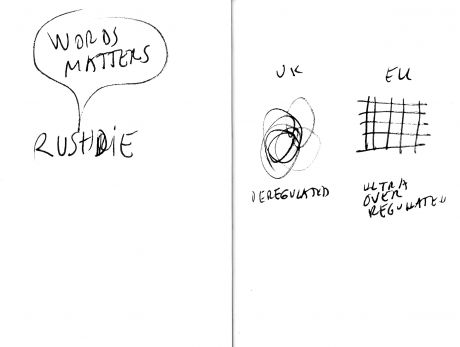 WORDS
MATTERS
RUSHDIE
UK
EU
DEREGULATED
ULTRA
OVER
REGULATED